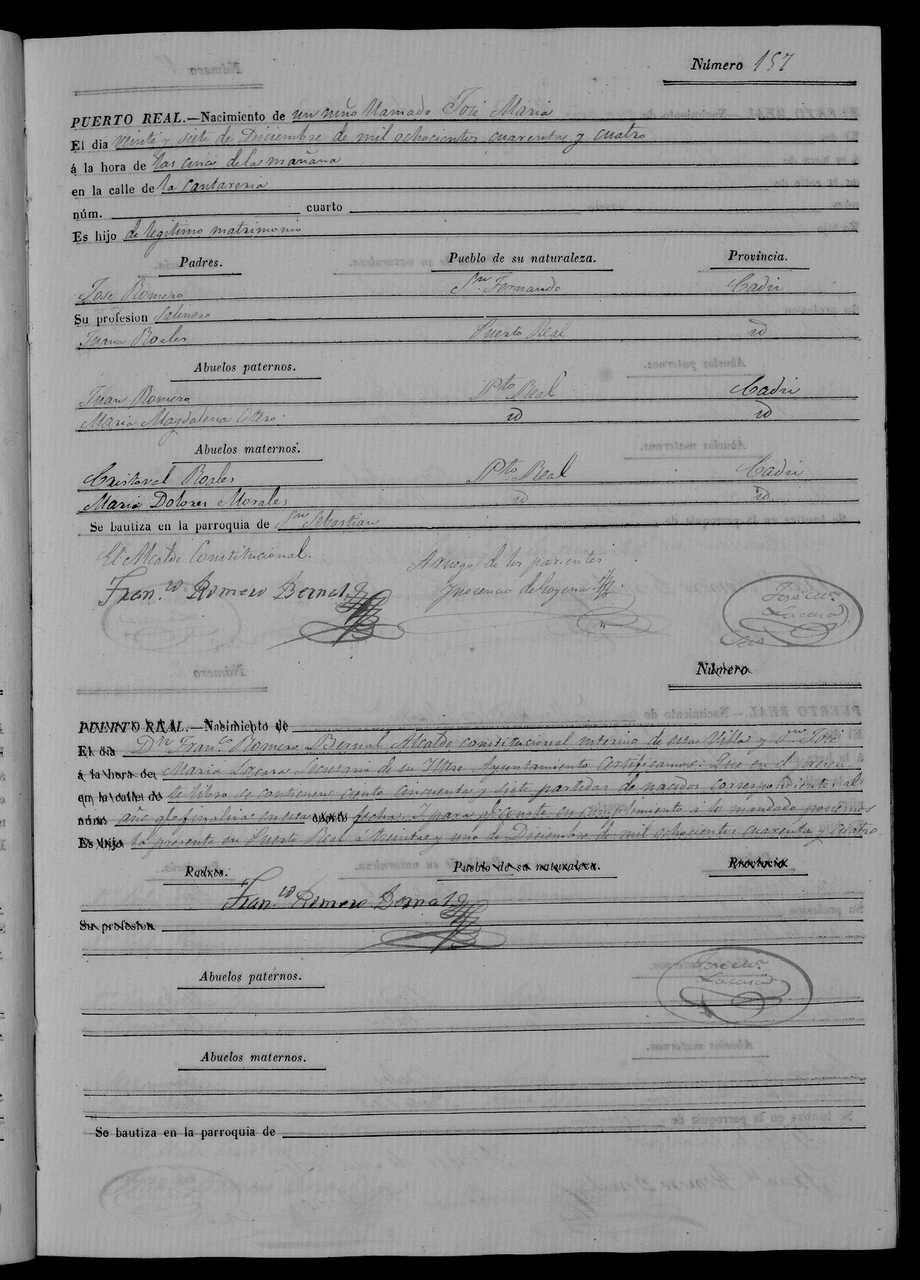 Número 157
PUERTO REAL.—Nacimiento de un niño llamado José Maria
El dia veinte y siete de Diciembre de mil ochocientos cuarenta y cuatro
á la hora de las cinco de la mañana
en la calle de la Cantareria
núm. cuarto
Es hijo de legitimo matrimonio
Padres. Pueblo de su naturaleza. Provincia.
José Romero Sn Fernando Cadiz
Su profesion Salinero
Juana Rosles Puerto Real id
Abuelos paternos.
Juan Romero Pto Real Cadiz
Maria Magdalena id id
Abuelos maternos.
Cristoval Rosles Pto Real Cadiz
Maria Dolores Morales id id
Se bautiza en la parroquia de Sn Sebastian
El Alcalde Constitucional. A ruego de los parientes
Fran.co Romero Bernal Ynocencio de
José Ma
Lacara
Srio
Número
PUERTO REAL.—Nacimiento de
El dia Dn Franco Romero Bernal Alcalde constitucional interino de esta Villa y Dn José
á la hora de Maria Lacara Secretario de su Iltre Ayuntamiento Certificamos: Que en el
en la calle de libro se contienen ciento cincuenta y siete partidas de nacidos correspondientes al
núm. año qe finaliza en esta cuarto fecha. Y para qe conste en cumplimiento á lo mandado
Es hijo la presente en Puerto Real á treinta y uno de Diciembre de mil ochocientos cuarenta y cuatro
Padres. Pueblo de su naturaleza. Provincia
Fran.co Romero Bernal
Su profesion
José Ma
Lacara
Abuelos paternos.
Abuelos maternos.
Se bautiza en la parroquia de